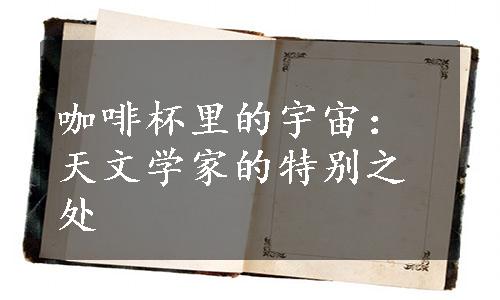 咖啡杯里的宇宙：
天文学家的特别之
处